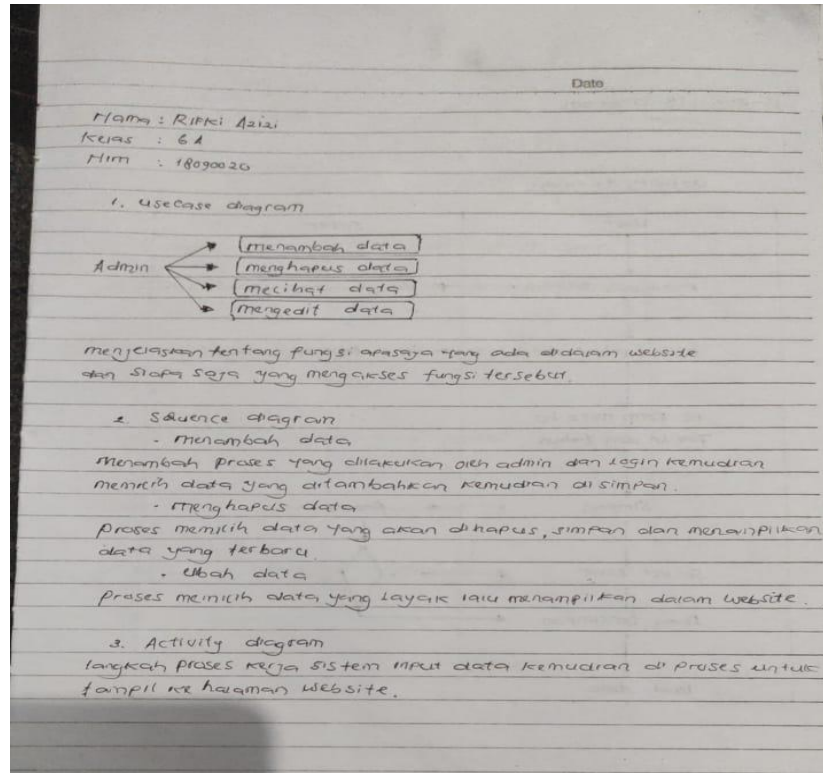 Date
Nama : Rifki Azizi
Kelas : 6 A
Nim : 18090020
1. usecase diagram
Admin
menambah data
menghapus data
melihat data
mengedit data
menjelaskan tentang fungsi apasaja yang ada didalam website
dan siapa saja yang mengakses fungsi tersebut.
2. Squence diagram
- menambah data
menambah proses yang dilakukan oleh admin dan login kemudian
memilih data yang ditambahkan kemudian di simpan.
- menghapus data
proses memilih data yang akan dihapus, simpan dan menampilkan
data yang terbaru
- ubah data
proses memilih data yang layak lalu menampilkan dalam website.
3. Activity diagram
langkah proses kerja sistem input data kemudian di proses untuk
tampil ke halaman website.